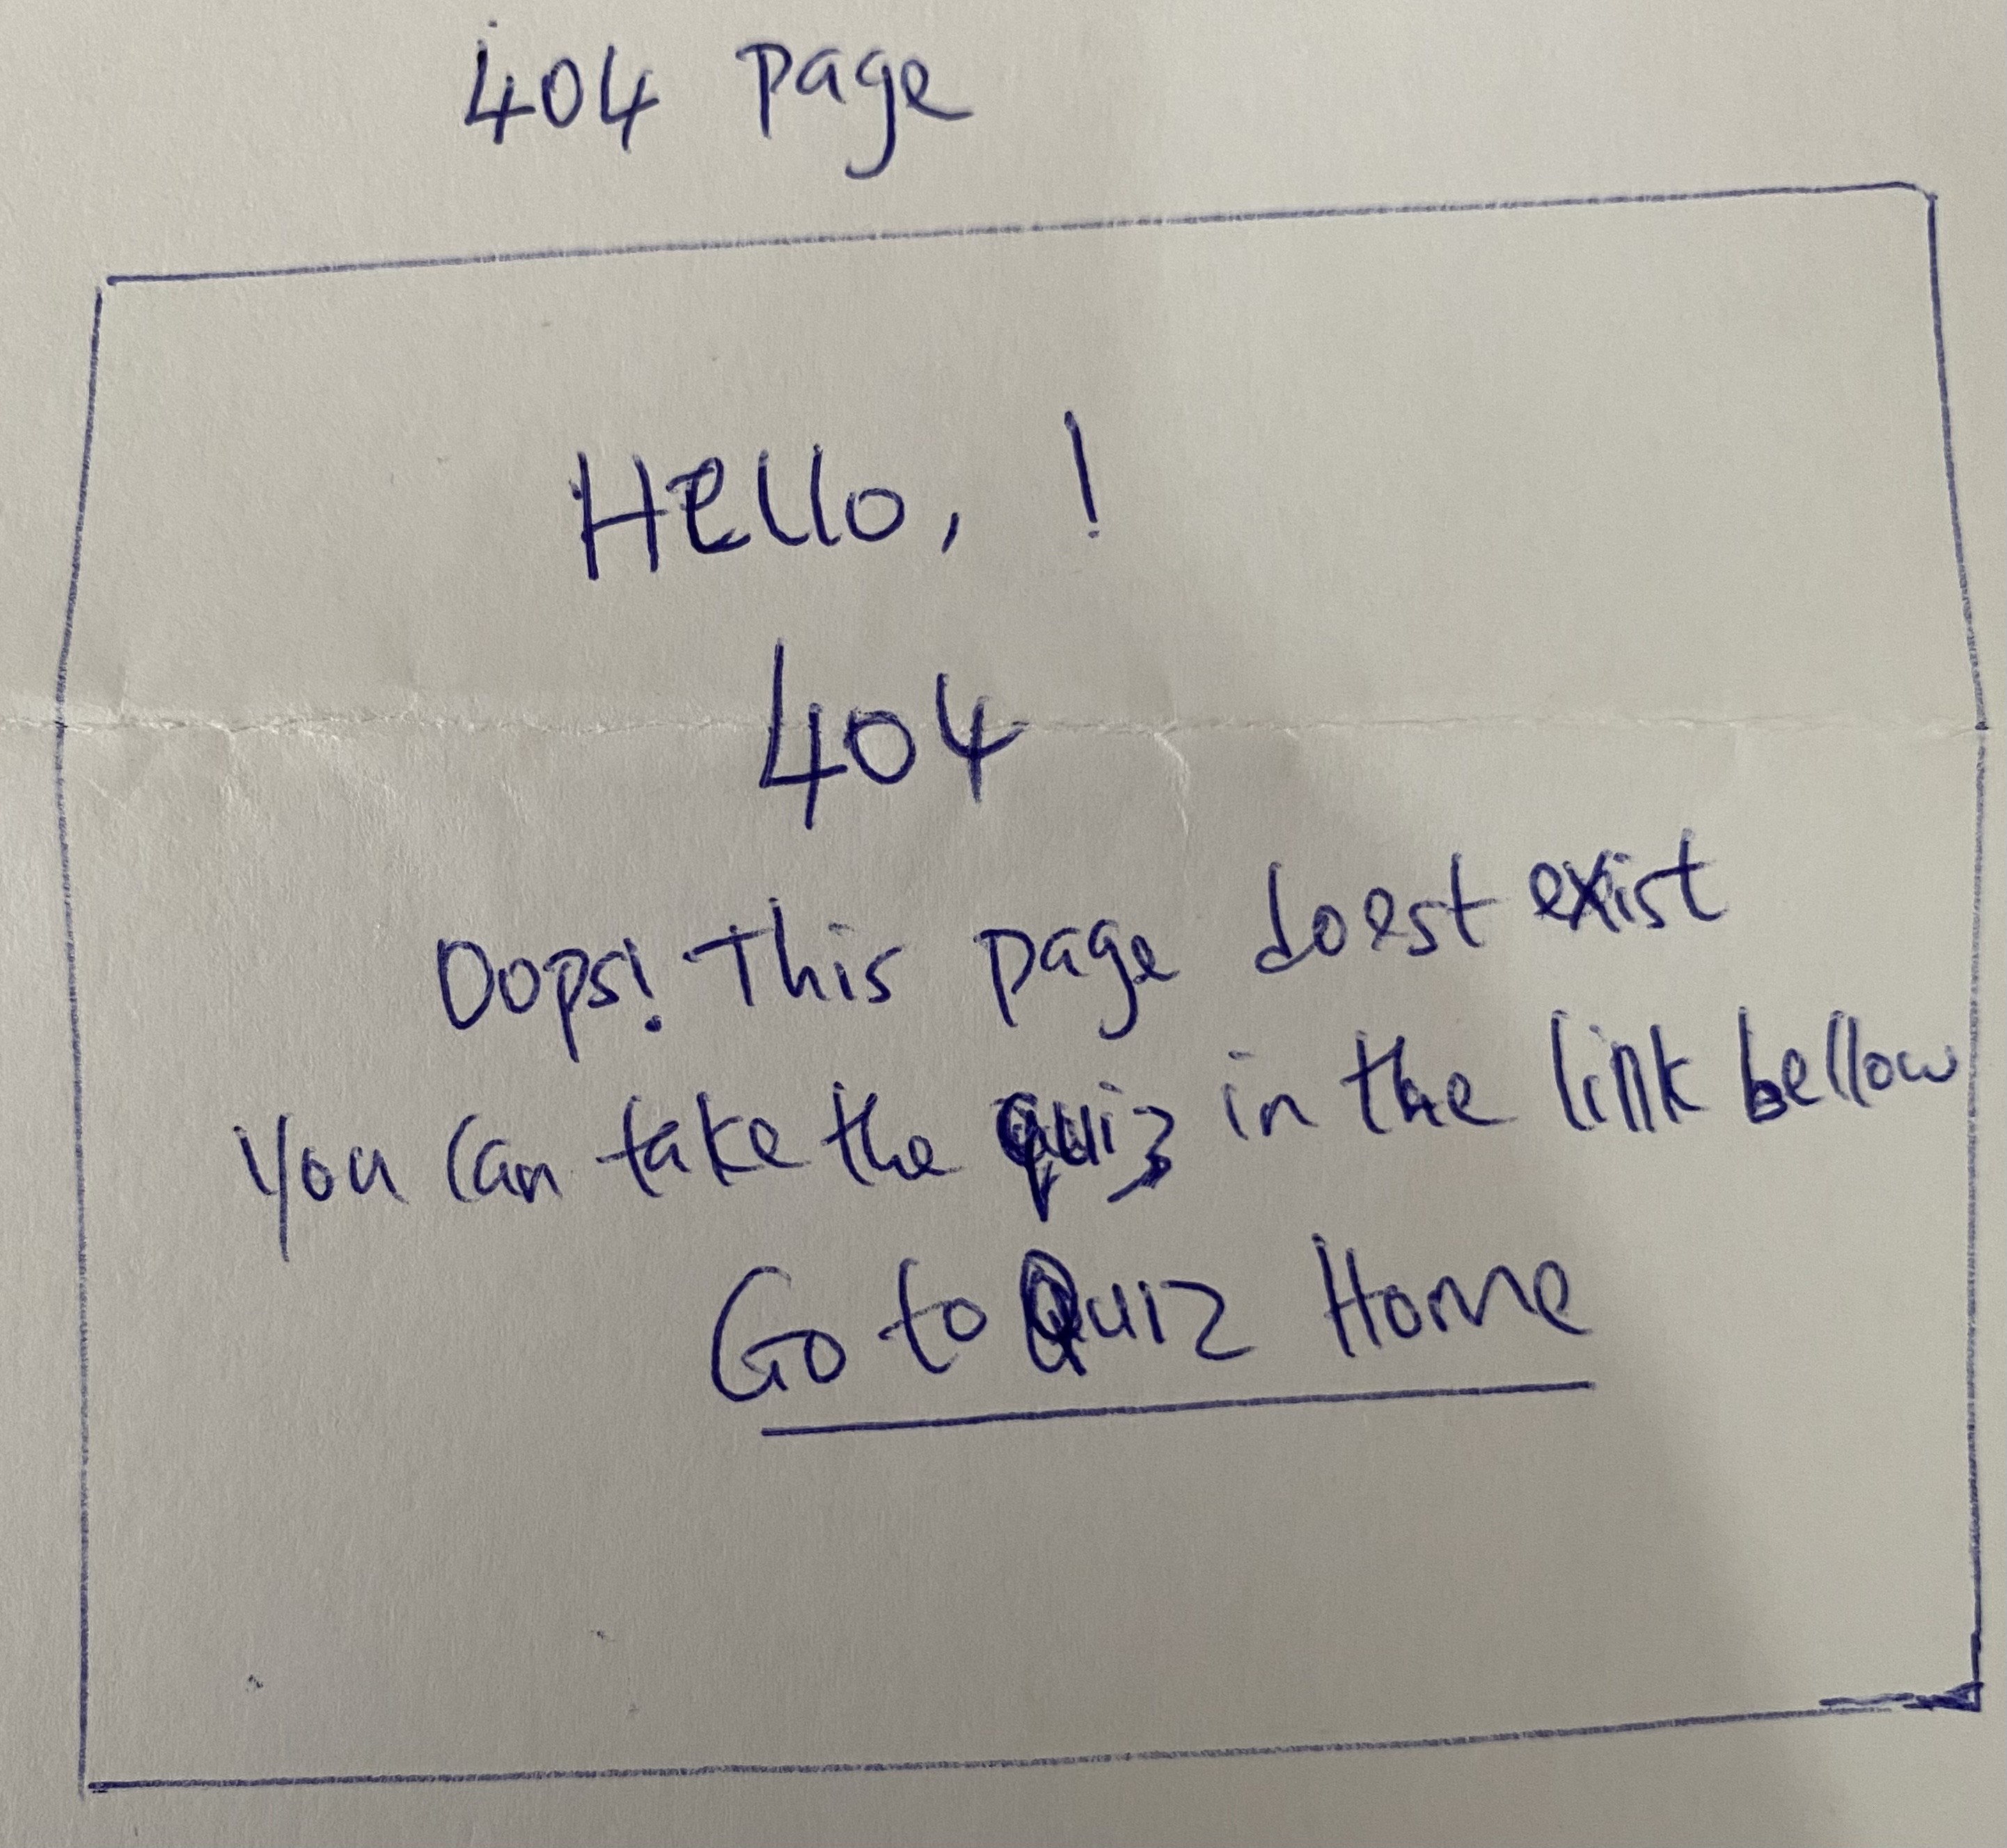 404 page
Hello, !
404
Oops! This page doest exist
You can take the quiz in the link bellow
Go to Quiz Home